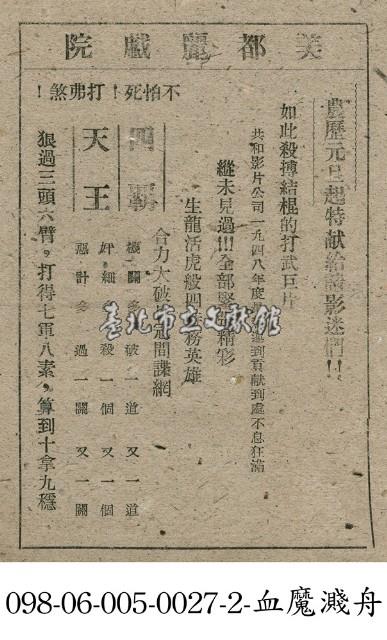 美都麗戲院
農歷元旦起特献給諸影迷們!!
如此殺搏結棍的打武巨片
共和影片公司一九四八年度到貢献到處不息狂濤
縱未見過!!!全部緊精彩
生龍活虎般四務英雄
合力大破間諜網
不怕死！打弗煞！
四霸
天王
機關多 破一道又一道
奸細 殺一個又一個
惡計多 過一關又一關
狠過三頭六臂，打得七軍八素，算到十拿九穩
臺北市立文獻館
098-06-005-0027-2-血魔濺舟